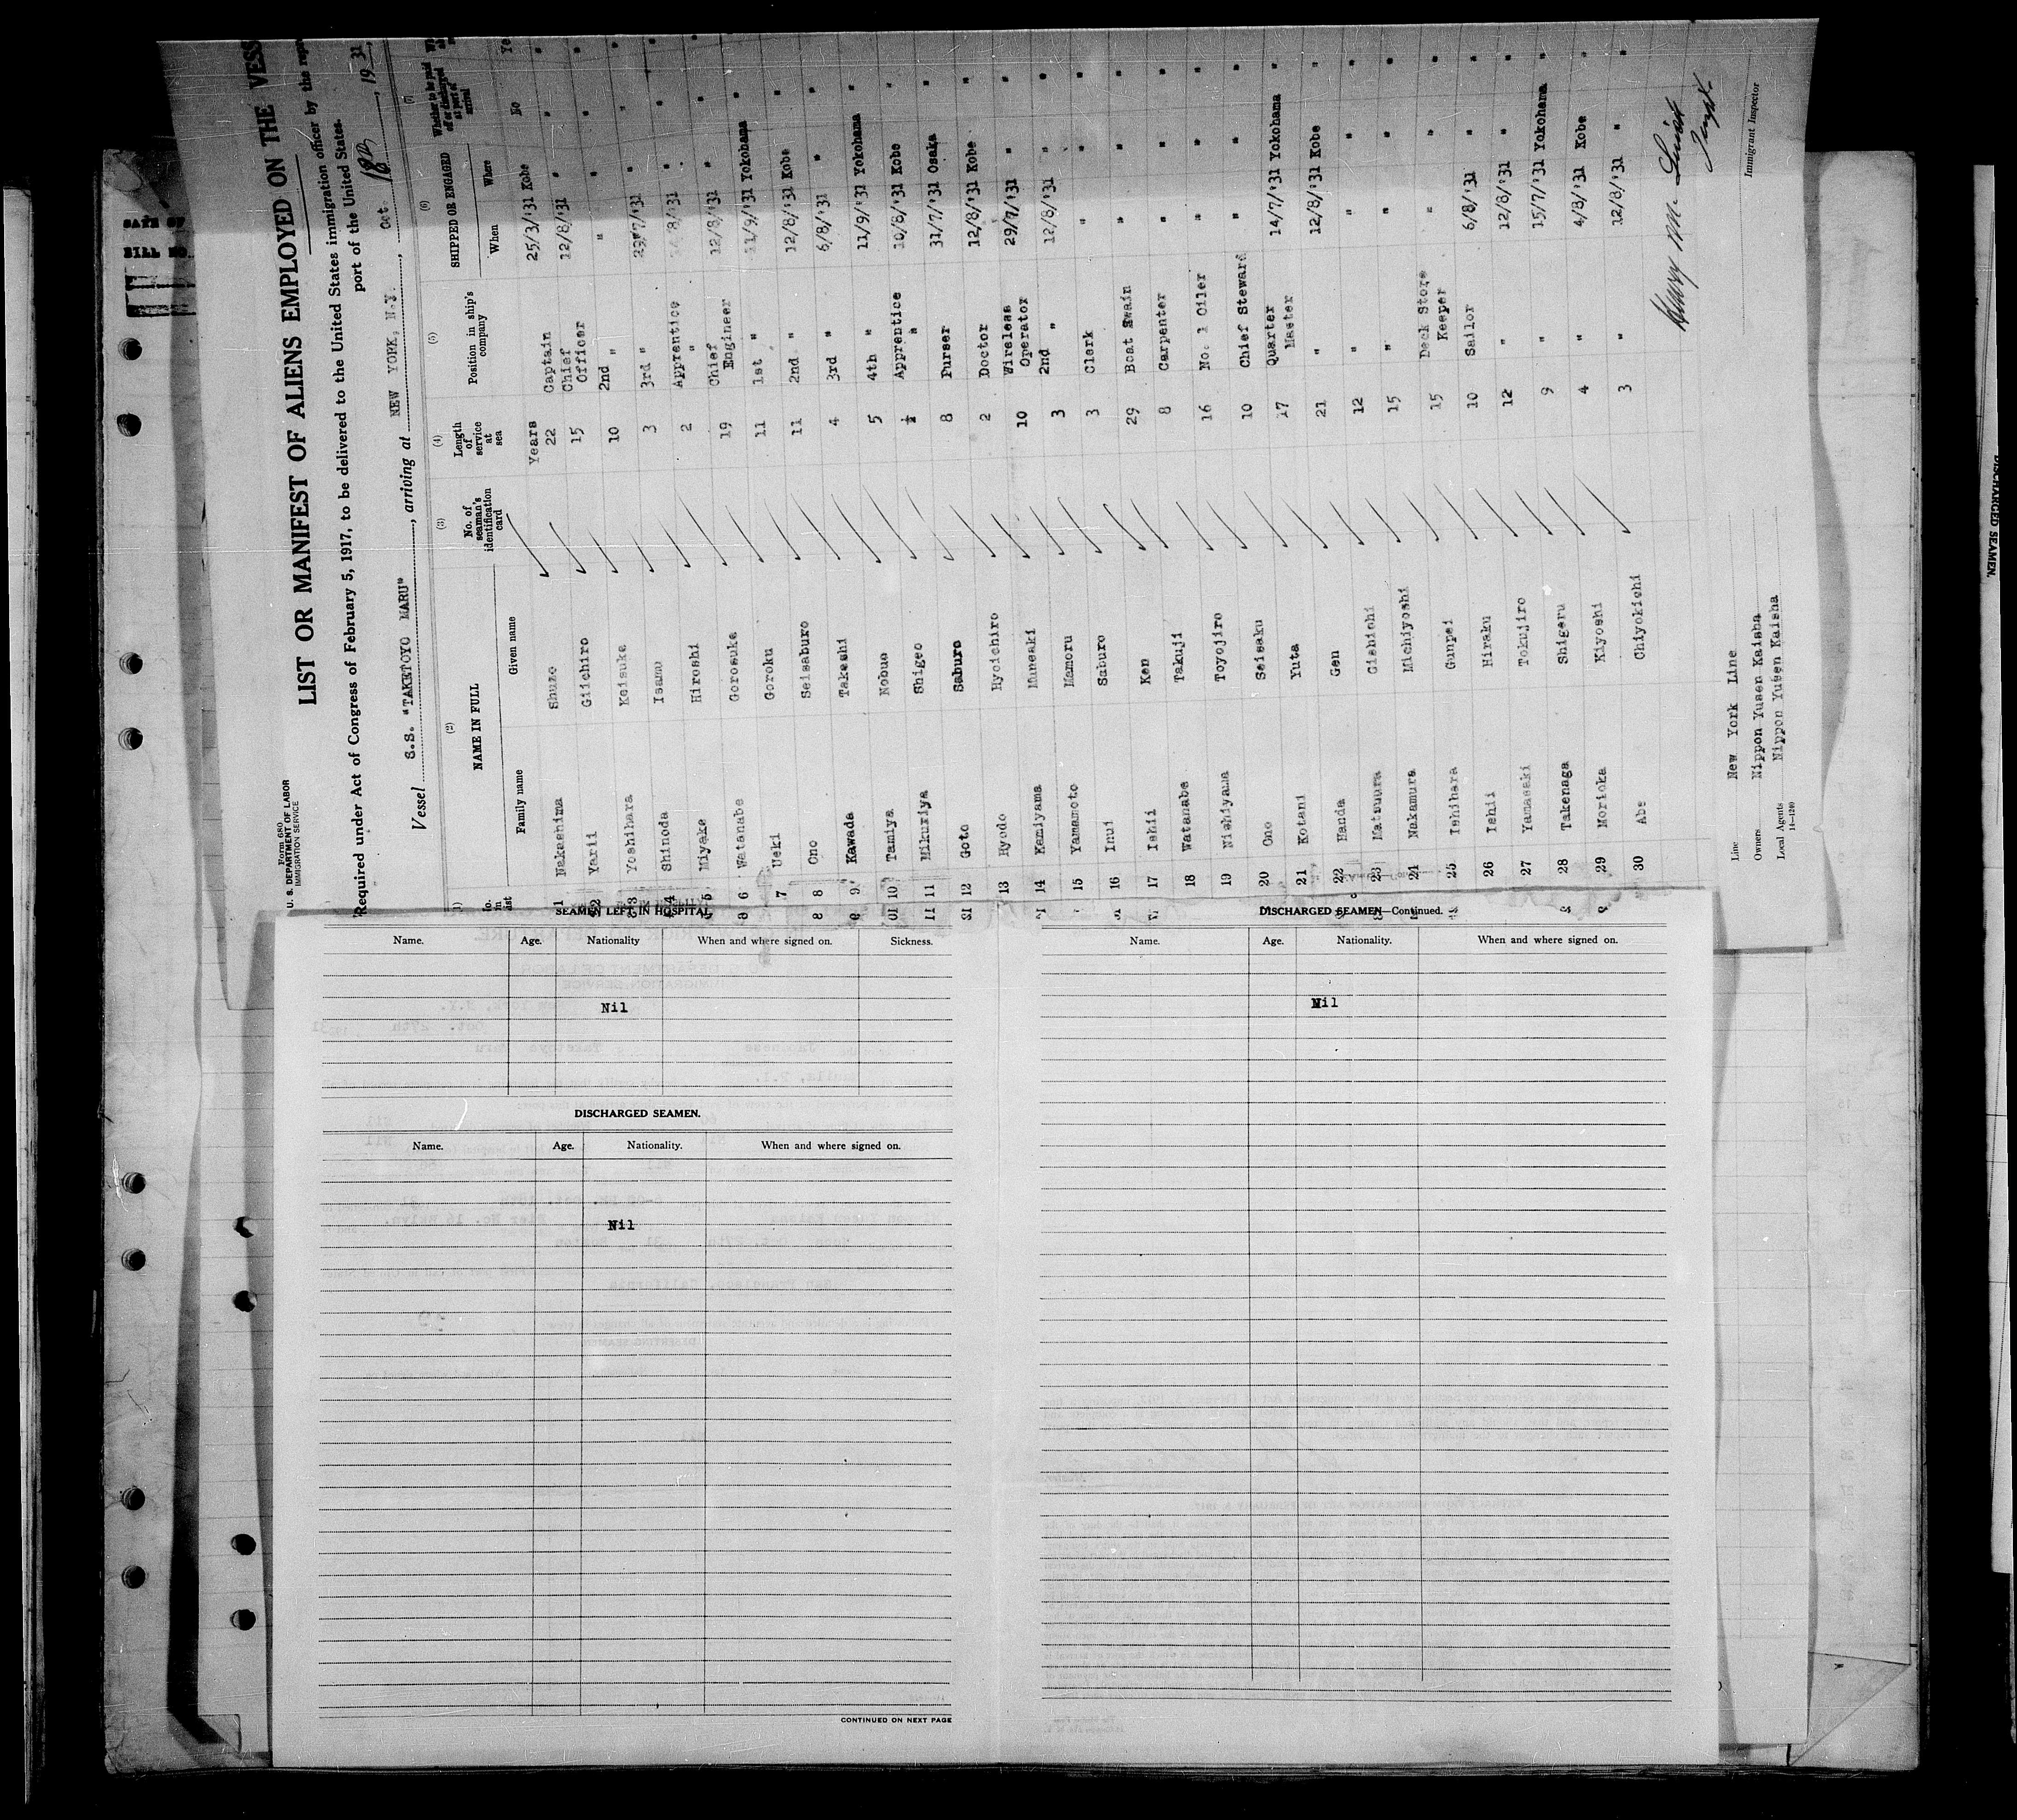 Form 680
U. S. DEPARTMENT OF LABOR
IMMIGRATION SERVICE
LIST OR MANIFEST OF ALIENS EMPLOYED ON THE VESS
Required under Act of Congress of February 5, 1917, to be delivered to the United States immigration officer by the repr
port of the United States.
Vessel S.S. "TAKETOYO MARU", arriving at NEW YORK, N.Y., Oct. 18th, 1931
(2) (3) (4) (5) (6) (7)
NAME IN FULL No. of seaman's identification card Length of service at sea Position in ship's company SHIPPED OR ENGAGED Whether to be paid off or discharged at port of arrival
Family name Given name When Where
1 Nakashima Shuzo Years 22 Captain 25/3/'31 Kobe No "
2 Yarii Giichiro 15 Chief Officer 12/8/'31 " " "
3 Yoshihara Keisuke 10 2nd " " " " "
4 Shinoda Isamu 3 3rd " 29/7/'31 " " "
5 Miyake Hiroshi 2 Apprentice " 8/'31 " " "
6 Watanabe Gorosuke 19 Chief Engineer 12/8/'31 " " "
7 Ueki Goroku 11 1st " 11/9/'31 Yokohama " "
8 Ono Seisaburo 11 2nd " 12/8/'31 Kobe " "
9 Kawada Takeshi 4 3rd " 6/8/'31 " " "
10 Tamiya Nobuo 5 4th " 11/9/'31 Yokohama " "
11 Mikuriya Shigeo ½ Apprentice " 10/8/'31 Kobe " "
12 Goto Saburo 8 Purser 31/7/'31 Osaka " "
13 Hyodo Hyoichiro 2 Doctor 12/8/'31 Kobe " "
14 Kamiyama Muneaki 10 Wireless Operator 29/7/'31 " " "
15 Yamamoto Mamoru 3 2nd " 12/8/'31 " " "
16 Inui Saburo 3 Clerk " " "
17 Ishii Ken 29 Boat Swain " " "
18 Watanabe Takuji 8 Carpenter " " "
19 Nishiyama Toyojiro 16 No. 1 Oiler " " "
20 Ono Seisaku 10 Chief Steward " " "
21 Kotani Yuta 17 Quarter Master 14/7/'31 Yokohama "
22 Handa Gen 21 " 12/8/'31 Kobe "
23 Matsuura Gishichi 12 " " " "
24 Nakamura Michiyoshi 15 " " " "
25 Ishihara Gunpei 15 Deck Store Keeper " " "
26 Ishii Hiraku 10 Sailor 6/8/'31 " "
27 Yamasaki Tokujiro 12 " 12/8/'31 " "
28 Takenaga Shigeru 9 " 15/7/'31 Yokohama "
29 Morioka Kiyoshi 4 " 4/8/'31 Kobe "
30 Abe Chiyokichi 3 " 12/8/'31 " "
Immigrant Inspector
Line New York Line
Owners Nippon Yusen Kaisha
Local Agents Nippon Yusen Kaisha
14—1240
SEAMEN LEFT IN HOSPITAL
Name. Age. Nationality When and where signed on. Sickness.
Nil
DISCHARGED SEAMEN.
Name. Age. Nationality. When and where signed on.
Nil
CONTINUED ON NEXT PAGE
DISCHARGED SEAMEN—Continued.
Name. Age. Nationality. When and where signed on.
Nil
DISCHARGED SEAMEN.